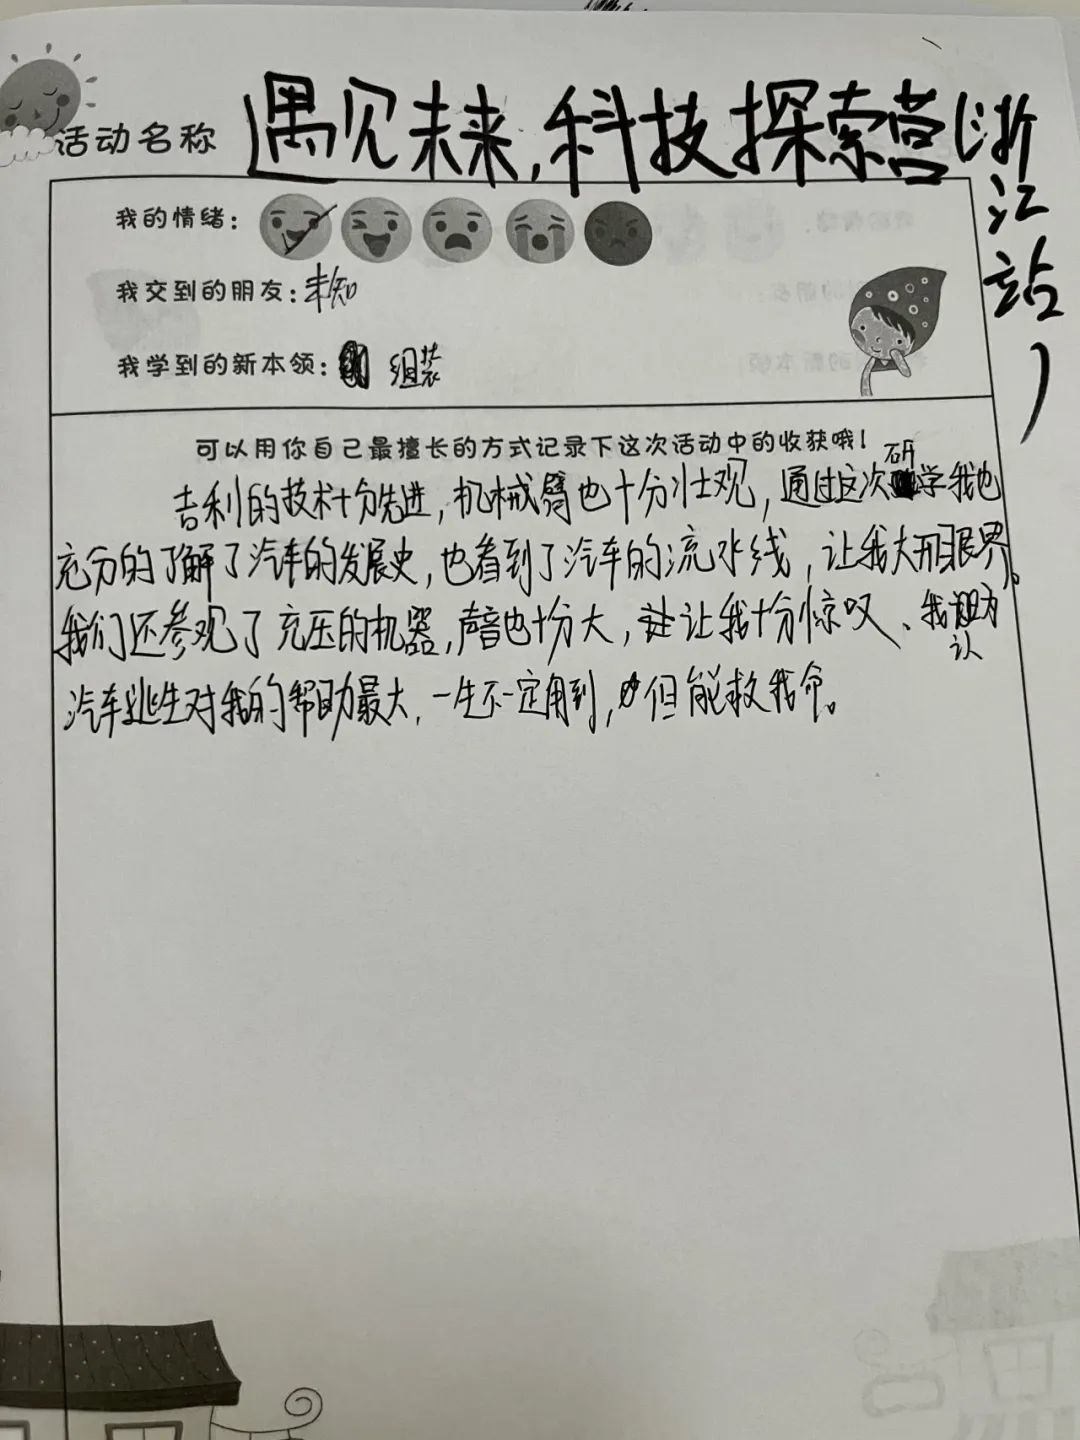 活动名称 遇见未来,科技探索营(浙江站)
我的情绪：
我交到的朋友：未知
我学到的新本领： 组装
可以用你自己最擅长的方式记录下这次活动中的收获哦！
吉利的技术十分先进，机械臂也十分壮观，通过这次研学我也
充分的了解了汽车的发展史，也看到了汽车的流水线，让我大开眼界。
我们还参观了充压的机器，声音也十分大，让我十分惊叹、我认为
汽车逃生对我的帮助最大，一生不一定用到，但能救我命。